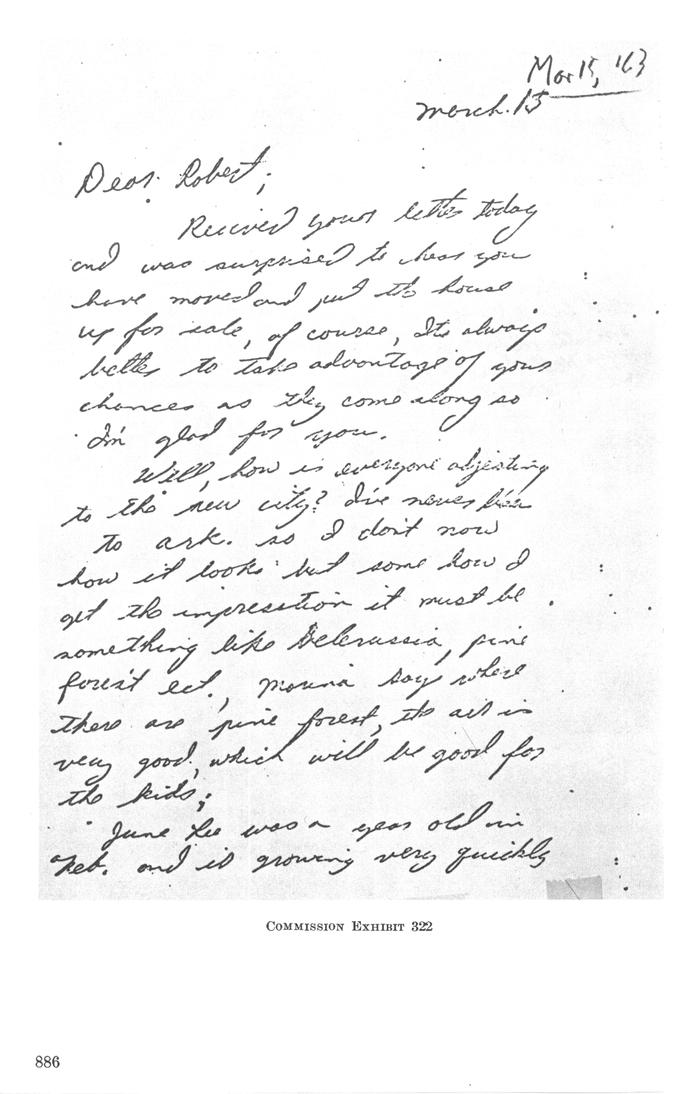 Mar 15, '63
march. 15
Dear Robert;
Recived your letter today
and was surprised to hear you
have moved and put the house
up for sale, of course, Its always
better to take advantage of your
chances as they come along so
I'm glad for you.
Well, how is everyone adjesting
to the new city? I've never been
to ark. so I don't now
how it looks but some how I
get the impression it must be
something like Belerussia, pine
forest ect., marina say where
there are pine forest, the air is
very good, which will be good for
the kids;
June Lee was a year old in
Feb. and is growing very quickly
COMMISSION EXHIBIT 322
886